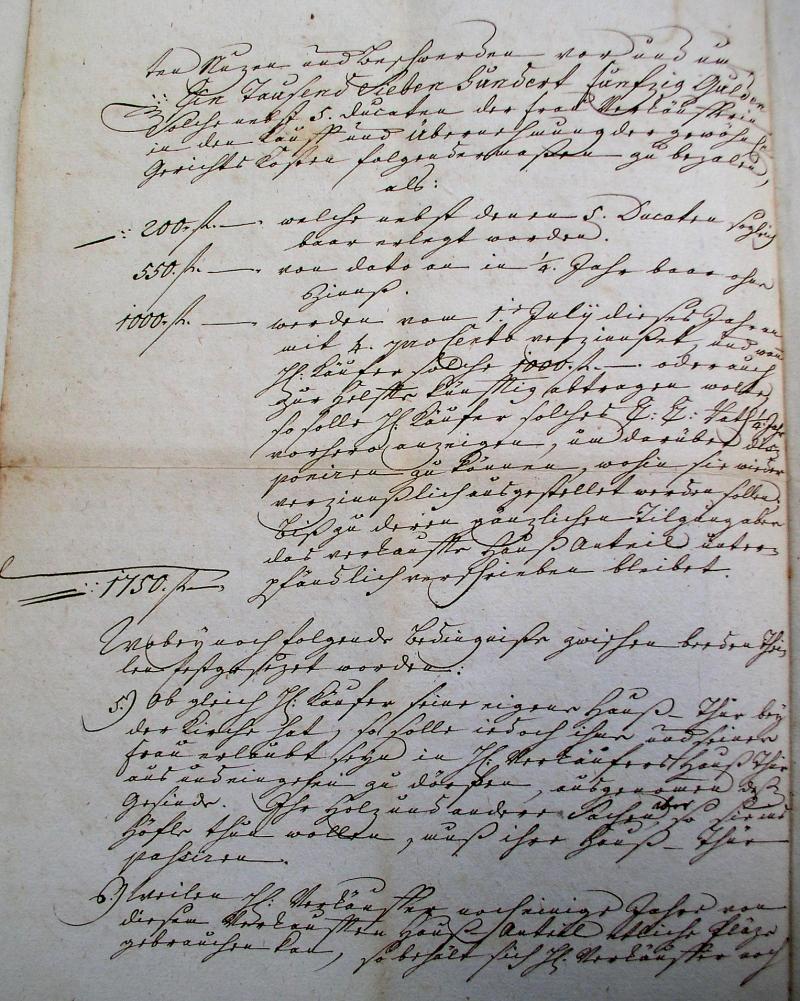 ten Nuzen und Beschwerden vor und um
Ein Tausend Sieben hundert funfzig Gulden
Solche nebst 5. Ducaten der Frau Verkäufferin
in den Kauff und Übernehmung der gewöhnl.
Gerichts Kosten folgendermaßen zu bezalen,
als:
200.f. — welche nebst denen 5. Ducaten sogleich
baar erlegt worden.
550.f. — von dato an in 1/4. Jahr baar ohne
Zinnß.
1000.f. — werden vom 1t July dieses Jahr an
mit 4. pro Cento verzinnßet, und wann
H: Käufer solche 1000.f. — oder auch
zur Helfte künfftig abtragen wolte,
so solle H: Käufer solches T: T: 1/4 Jahr
vorhero anzeigen, um darüber dis-
poniren zu können, wohin sie wieder
verzinnßlich ausgestellet werden sollen,
Biß zu deren gänzlichen Tilgung aber
das verkauffte Hauß Anteil unter-
1750.f. — pfändlich verschrieben bleibet.
Wobey noch folgende Bedingniße zwischen beeden Thei-
len festgesezet worden:
5.) Ob gleich H: Käufer seine eigene Hauß-Thür bey
der Kirche hat, so solle iedoch ihm und seiner
Frau erlaubt seyn in H: Verkäufers Hauß Thür
aus und eingehen zu dörfen, ausgenomen deß
Gesinde. Ihr Holz und andere Sachen aber so sie ins
Höfle thun wollen, muß ihre Hauß-Thür
paßiren.
6.) weilen H: Verkäuffer noch einige Jahre von
diesem Verkaufften Hauß Anteil etliche Pläze
gebrauchen kan, so behält sich H: Verkäuffer noch